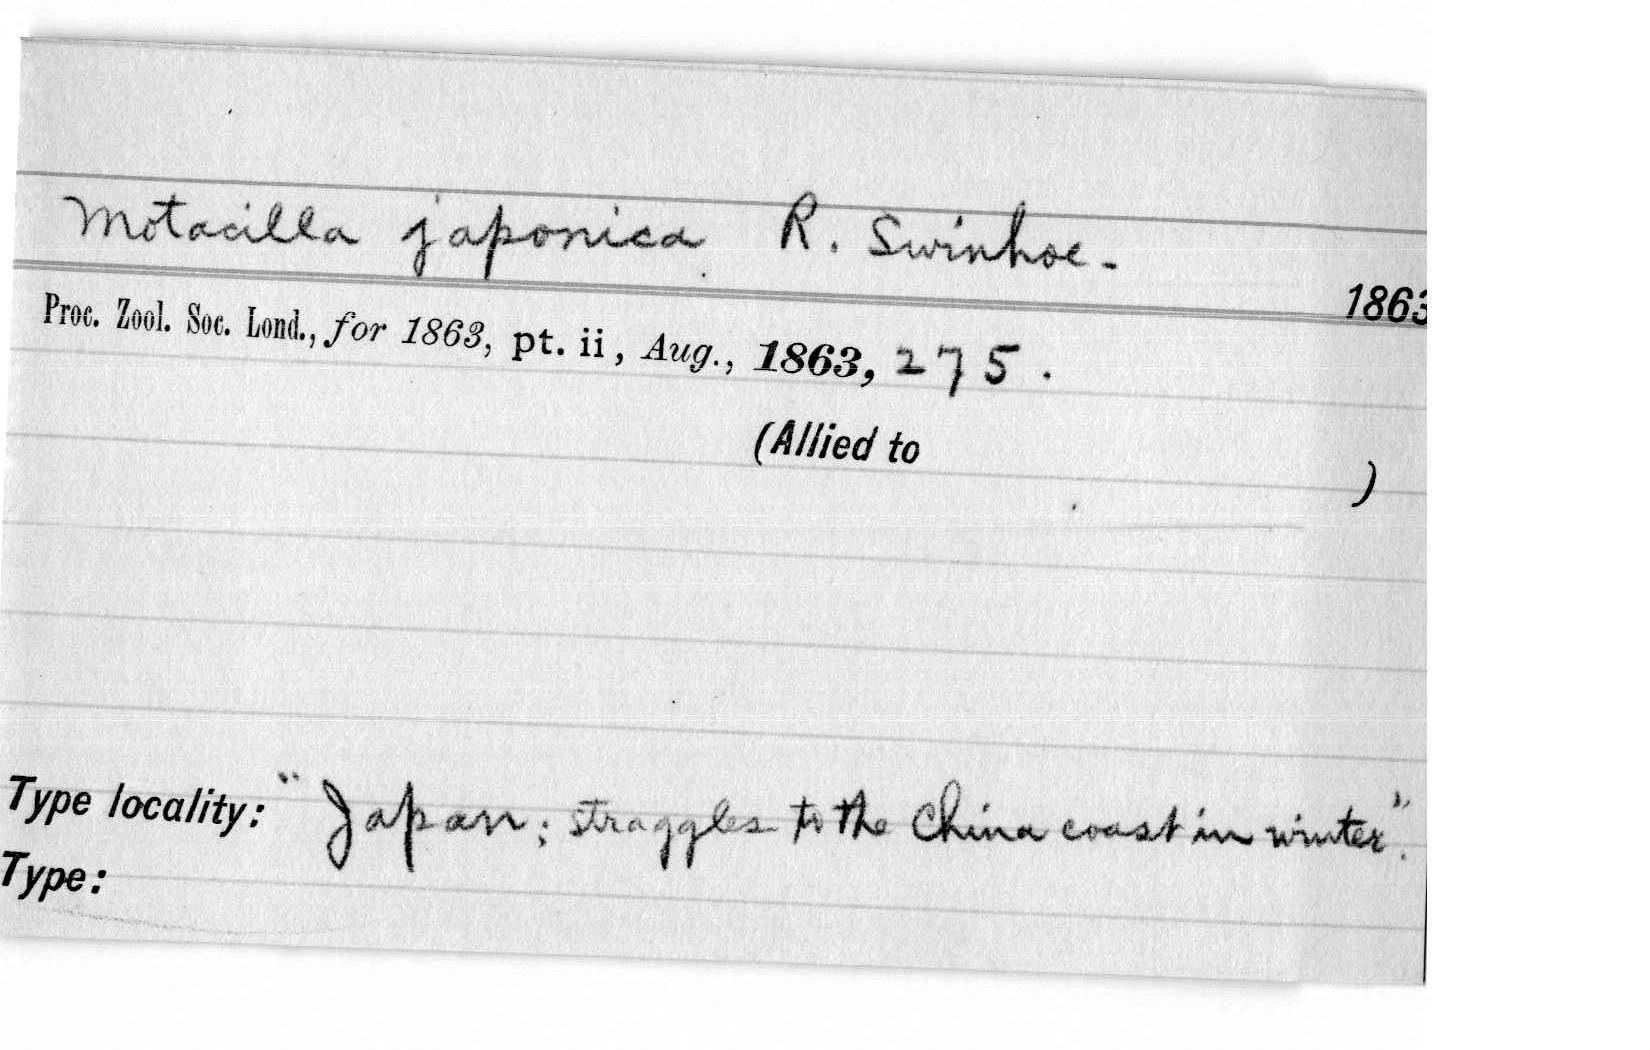 Motacilla japonica R. Swinhoe.
1863
Proc. Zool. Soc. Lond., for 1863, pt. ii, Aug., 1863, 275.
(Allied to )
Type locality: "Japan; straggles to the China coast in winter".
Type: